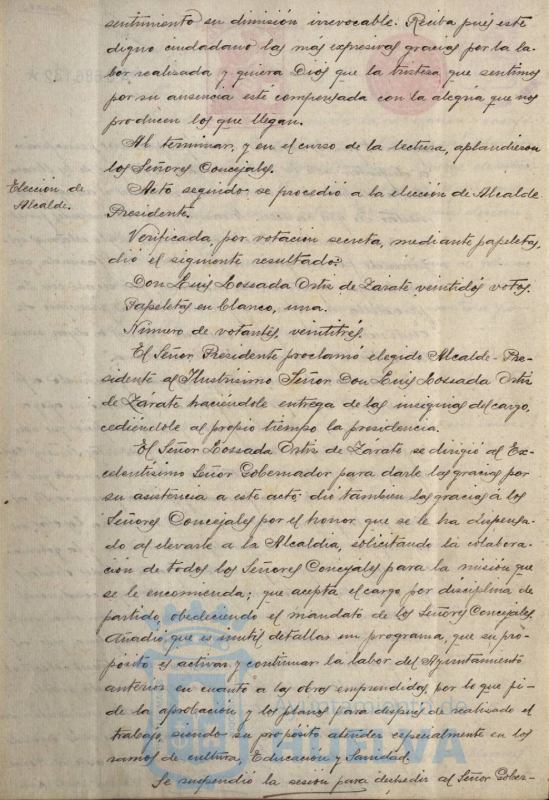 sentimiento su dimisión irrevocable. Reciba pues este
digno ciudadano las mas expresivas gracias por la la-
bor realizada y quiera Dios que la tristeza que sentimos
por su ausencia esté compensada con la alegria que nos
producen los que llegan.
Al terminar, y en el curso de la lectura, aplaudieron
los Señores Concejales.
Elección de
Alcalde.
Acto seguido, se procedió a la elección de Alcalde
Presidente.
Verificada, por votación secreta, mediante papeletas,
dió el siguiente resultado:
Don Luis Lossada Ortiz de Zarate veintidós votos.
Papeletas en blanco, una.
Número de votantes, veintitrés.
El Señor Presidente proclamó elegido Alcalde-Pre-
sidente al Ilustrisimo Señor Don Luis Lossada Ortiz
de Zarate haciéndole entrega de las insignias del cargo,
cediéndole al propio tiempo la presidencia.
El Señor Lossada Ortiz de Zarate se dirigió al Ex-
celentísimo Señor Gobernador para darle las gracias por
su asistencia a este acto dió tambien las gracias á los
Señores Concejales por el honor que se le ha dispensa-
do al elevarle a la Alcaldia, solicitando la colabora-
ción de todos los Señores Concejales para la misión que
se le encomienda; que acepta el cargo por disciplina de
partido, obedeciendo el mandato de los Señores Concejales.
Añadió que es inutil detallar un programa, que su pro-
pósito es activar y continuar la labor del Ayuntamiento
anterior en cuanto a las obras emprendidas, por lo que pi-
de la aprobación y los planos para después de realizado el
trabajo, siendo su propósito atender especialmente en los
ramos de cultura, Educación y Sanidad.
Se suspendió la sesión para despedir al Señor Gober-
HUELVA